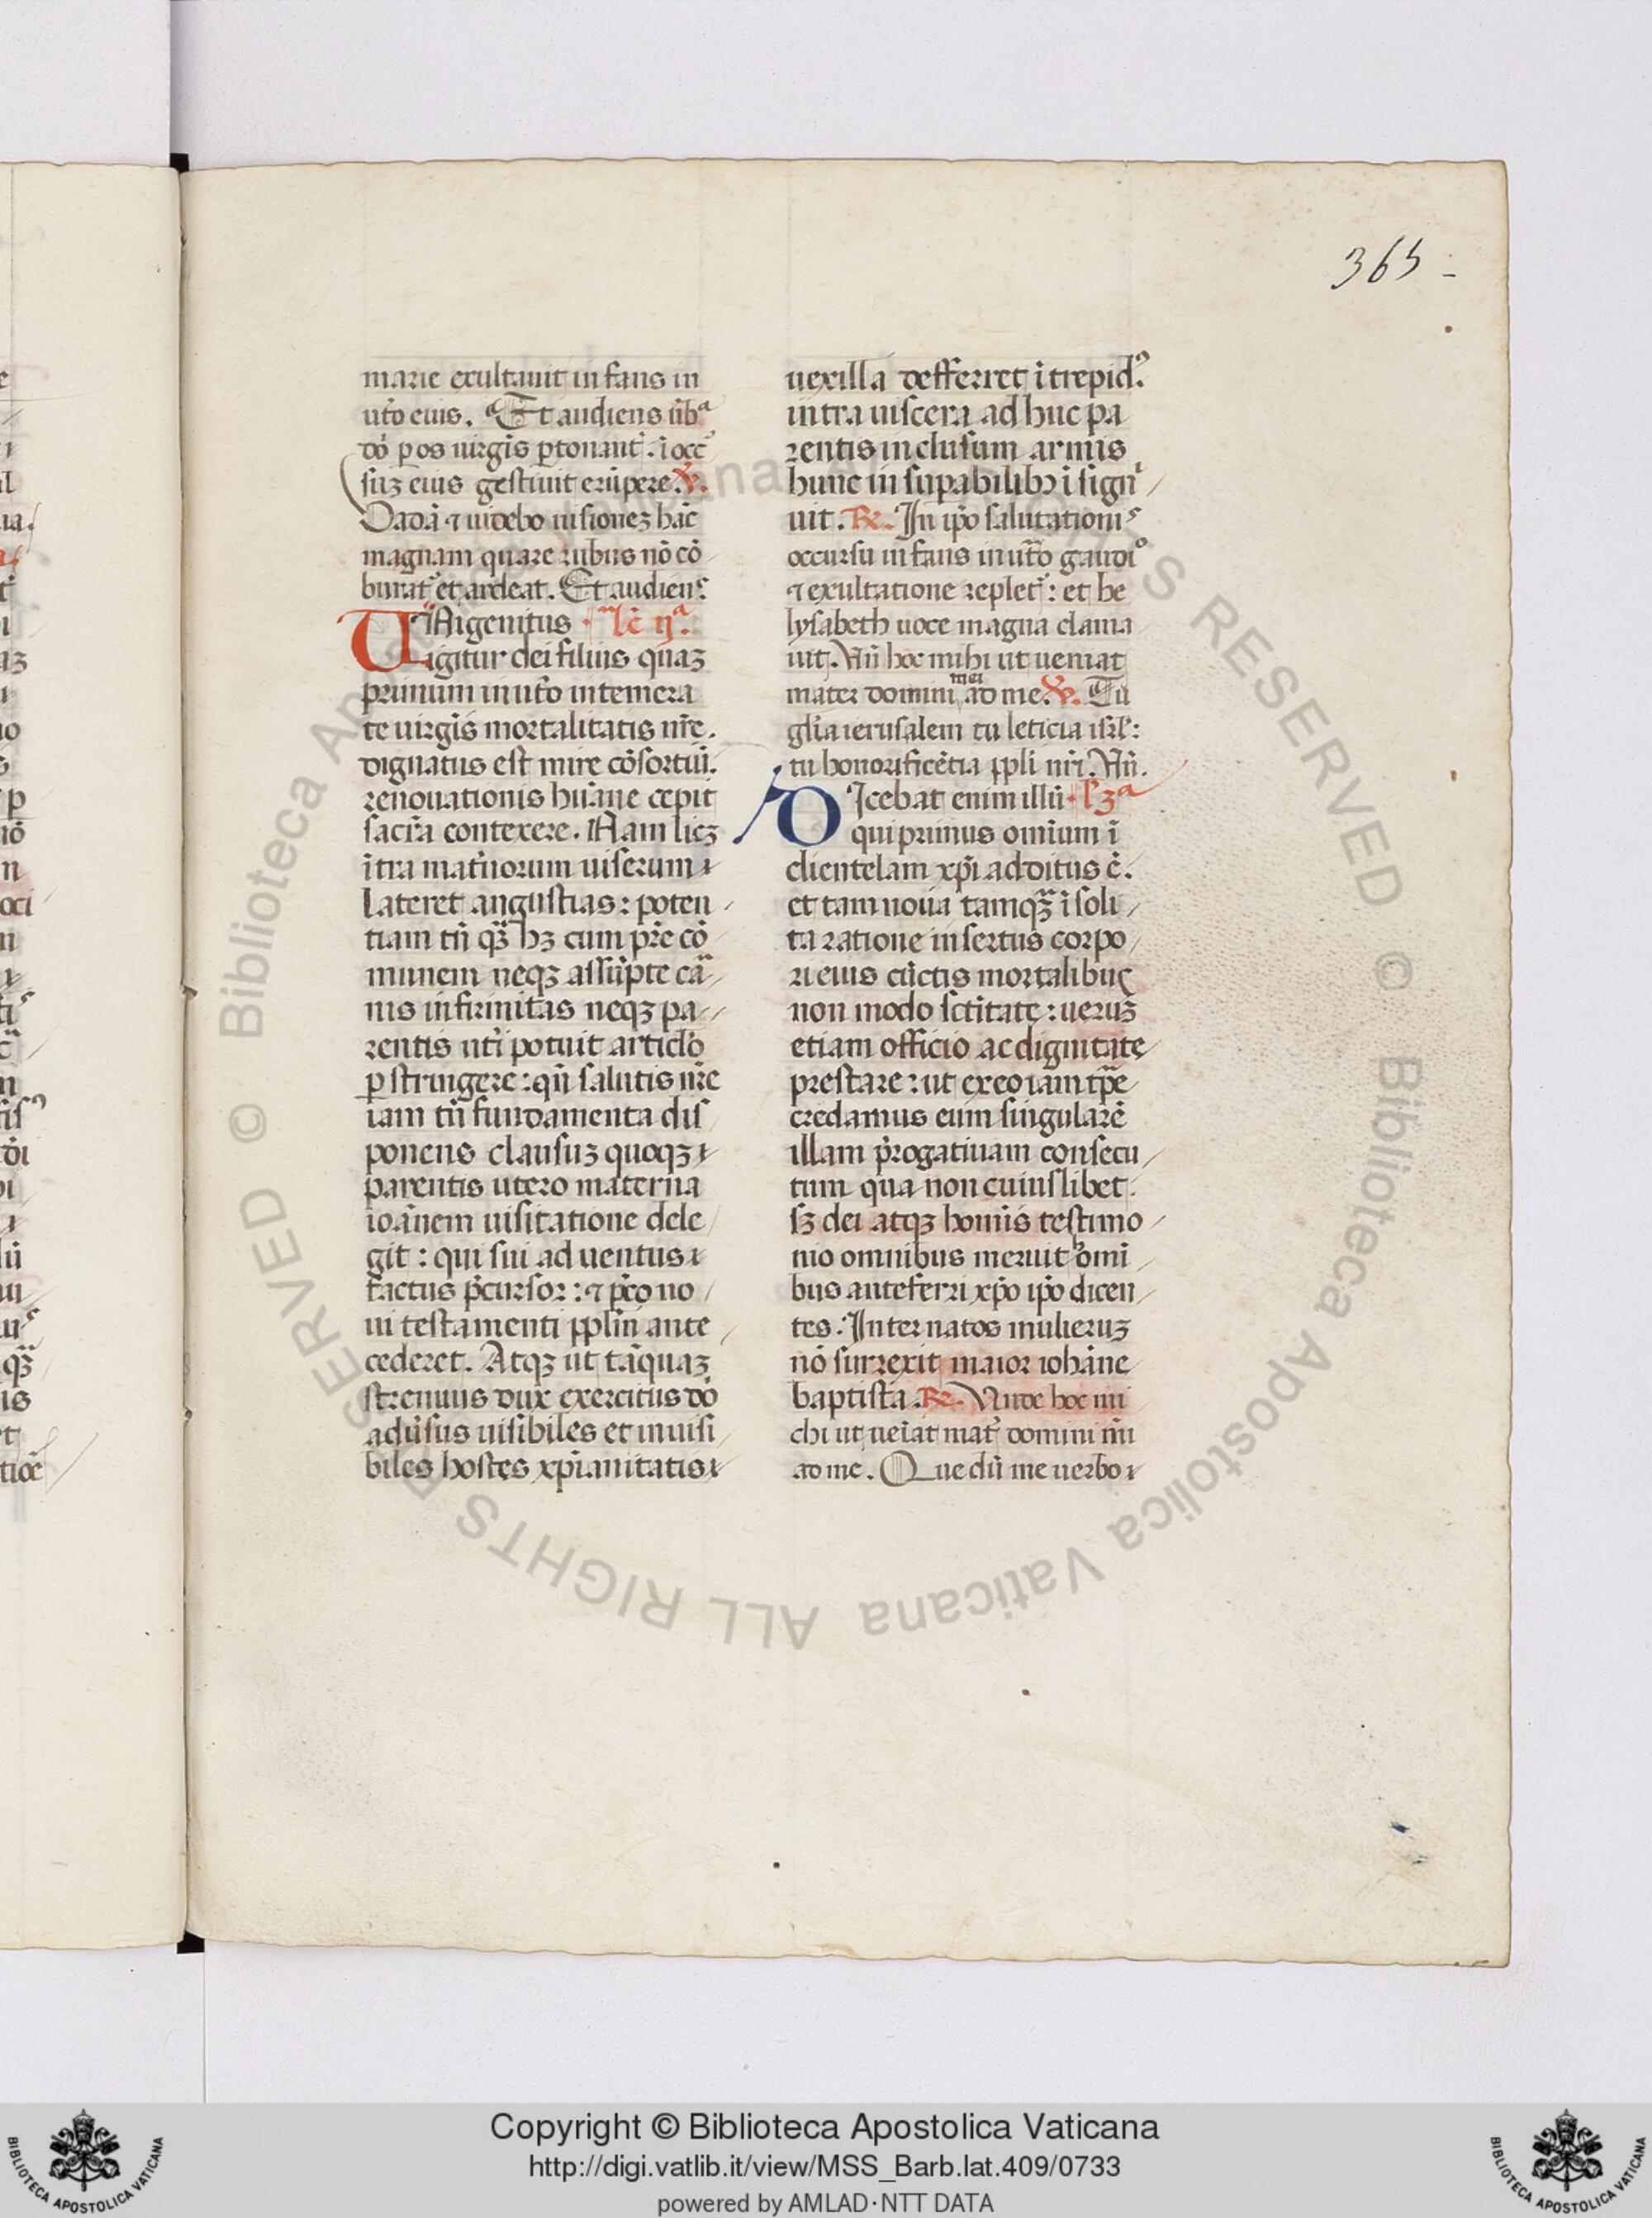 365
marie exultauit infans in
ut̃o eius. Et audiens ũbᵃ
dó p os uirgĩs ptonant᷑. ĩ occ᷑
suꝫ eius gestiuit erũpere. ℣.
Uadã ⁊ uidebo uisioneꝫ hãc
magnam quare rubus nõ cõ
burat᷑ et ardeat. Et audiens
UNigenitus lc̃ ijᵃ.
igitur dei filius quaꝫ
primum in ut̃o intemera
te uirgĩs mortalitatis nr̃e.
dignatus est mire cõsortiũ.
renouationis hũane cepit
sacr̃a contexere. Nam liꝫ
ĩtra mat̃norum uiserum
lateret angustias: poten
tiam tñ qᷓꝫ hꝫ cum pr̃e cõ
munem neqꝫ assũpte cã
nis infirmitas neqꝫ pa
rentis ut̃i potuit articlo
ꝑstringere: qñ salutis nr̃e
iam tũ fundamenta dis
ponens clausuꝫ quoqꝫ
parentis utero materna
ioãnem uisitatione dele
git: qui sui aduentus
factus p̃cursor: ⁊ p̃co no
ui testamenti pplm̃ ante
cederet. Atqꝫ ut tãquaꝫ
strenuus dux exercitus dó
adũsus uisibiles et inuisi
biles hostes xp̃ianitatis
uexilla defferret ĩtrepidꝰ
intra uiscera ad huc pa
rentis inclusum armis
hunc insupabilibꝫ ĩsignĩ
uit. ℟. In ip̃o salutationis
occursu infans in ut̃o gaudio
⁊ exultatione replet᷑: et he
lysabeth uoce magna clama
uit. Uñ hoc mihi ut ueniat
mater domini mei ad me. ℣. Tu
glĩa ierusalem tu leticia isrl̃:
tu honorificẽtia ppli nr̃i. Uñ.
DIcebat enim illũ. l̃ 3ᵃ
qui primus omĩum ĩ
clientelam xp̃i additus ẽ.
et tam noua tamqᷓꝫ ĩsoli
ta ratione insertus corpo
ri eius cũctis mortalibus
non modo sctĩtate: ueruꝫ
etiam officio ac dignitate
prestare: ut ex eo iam tp̃e
credamus eum singularẽ
illam p̃rogatiuam consecu
tum qua non cuiuslibet.
sꝫ dei atqꝫ homĩs testimo
nio omnibus meruit omĩ
bus anteferri xp̃o ip̃o dicen
tes. Inter natos mulieruꝫ
nõ surrexit maior iohãne
baptista. ℟. Unde hoc mi
chi ut ueĩat mat᷑ domini mi
ad me. Que dũ me uerbo
Copyright © Biblioteca Apostolica Vaticana
http://digi.vatlib.it/view/MSS_Barb.lat.409/0733
powered by AMLAD·NTT DATA
BIBLIOTECA APOSTOLICA VATICANA
BIBLIOTECA APOSTOLICA VATICANA
© Biblioteca Apostolica Vaticana ALL RIGHTS RESERVED © Biblioteca Apostolica Vaticana ALL RIGHTS RESERVED